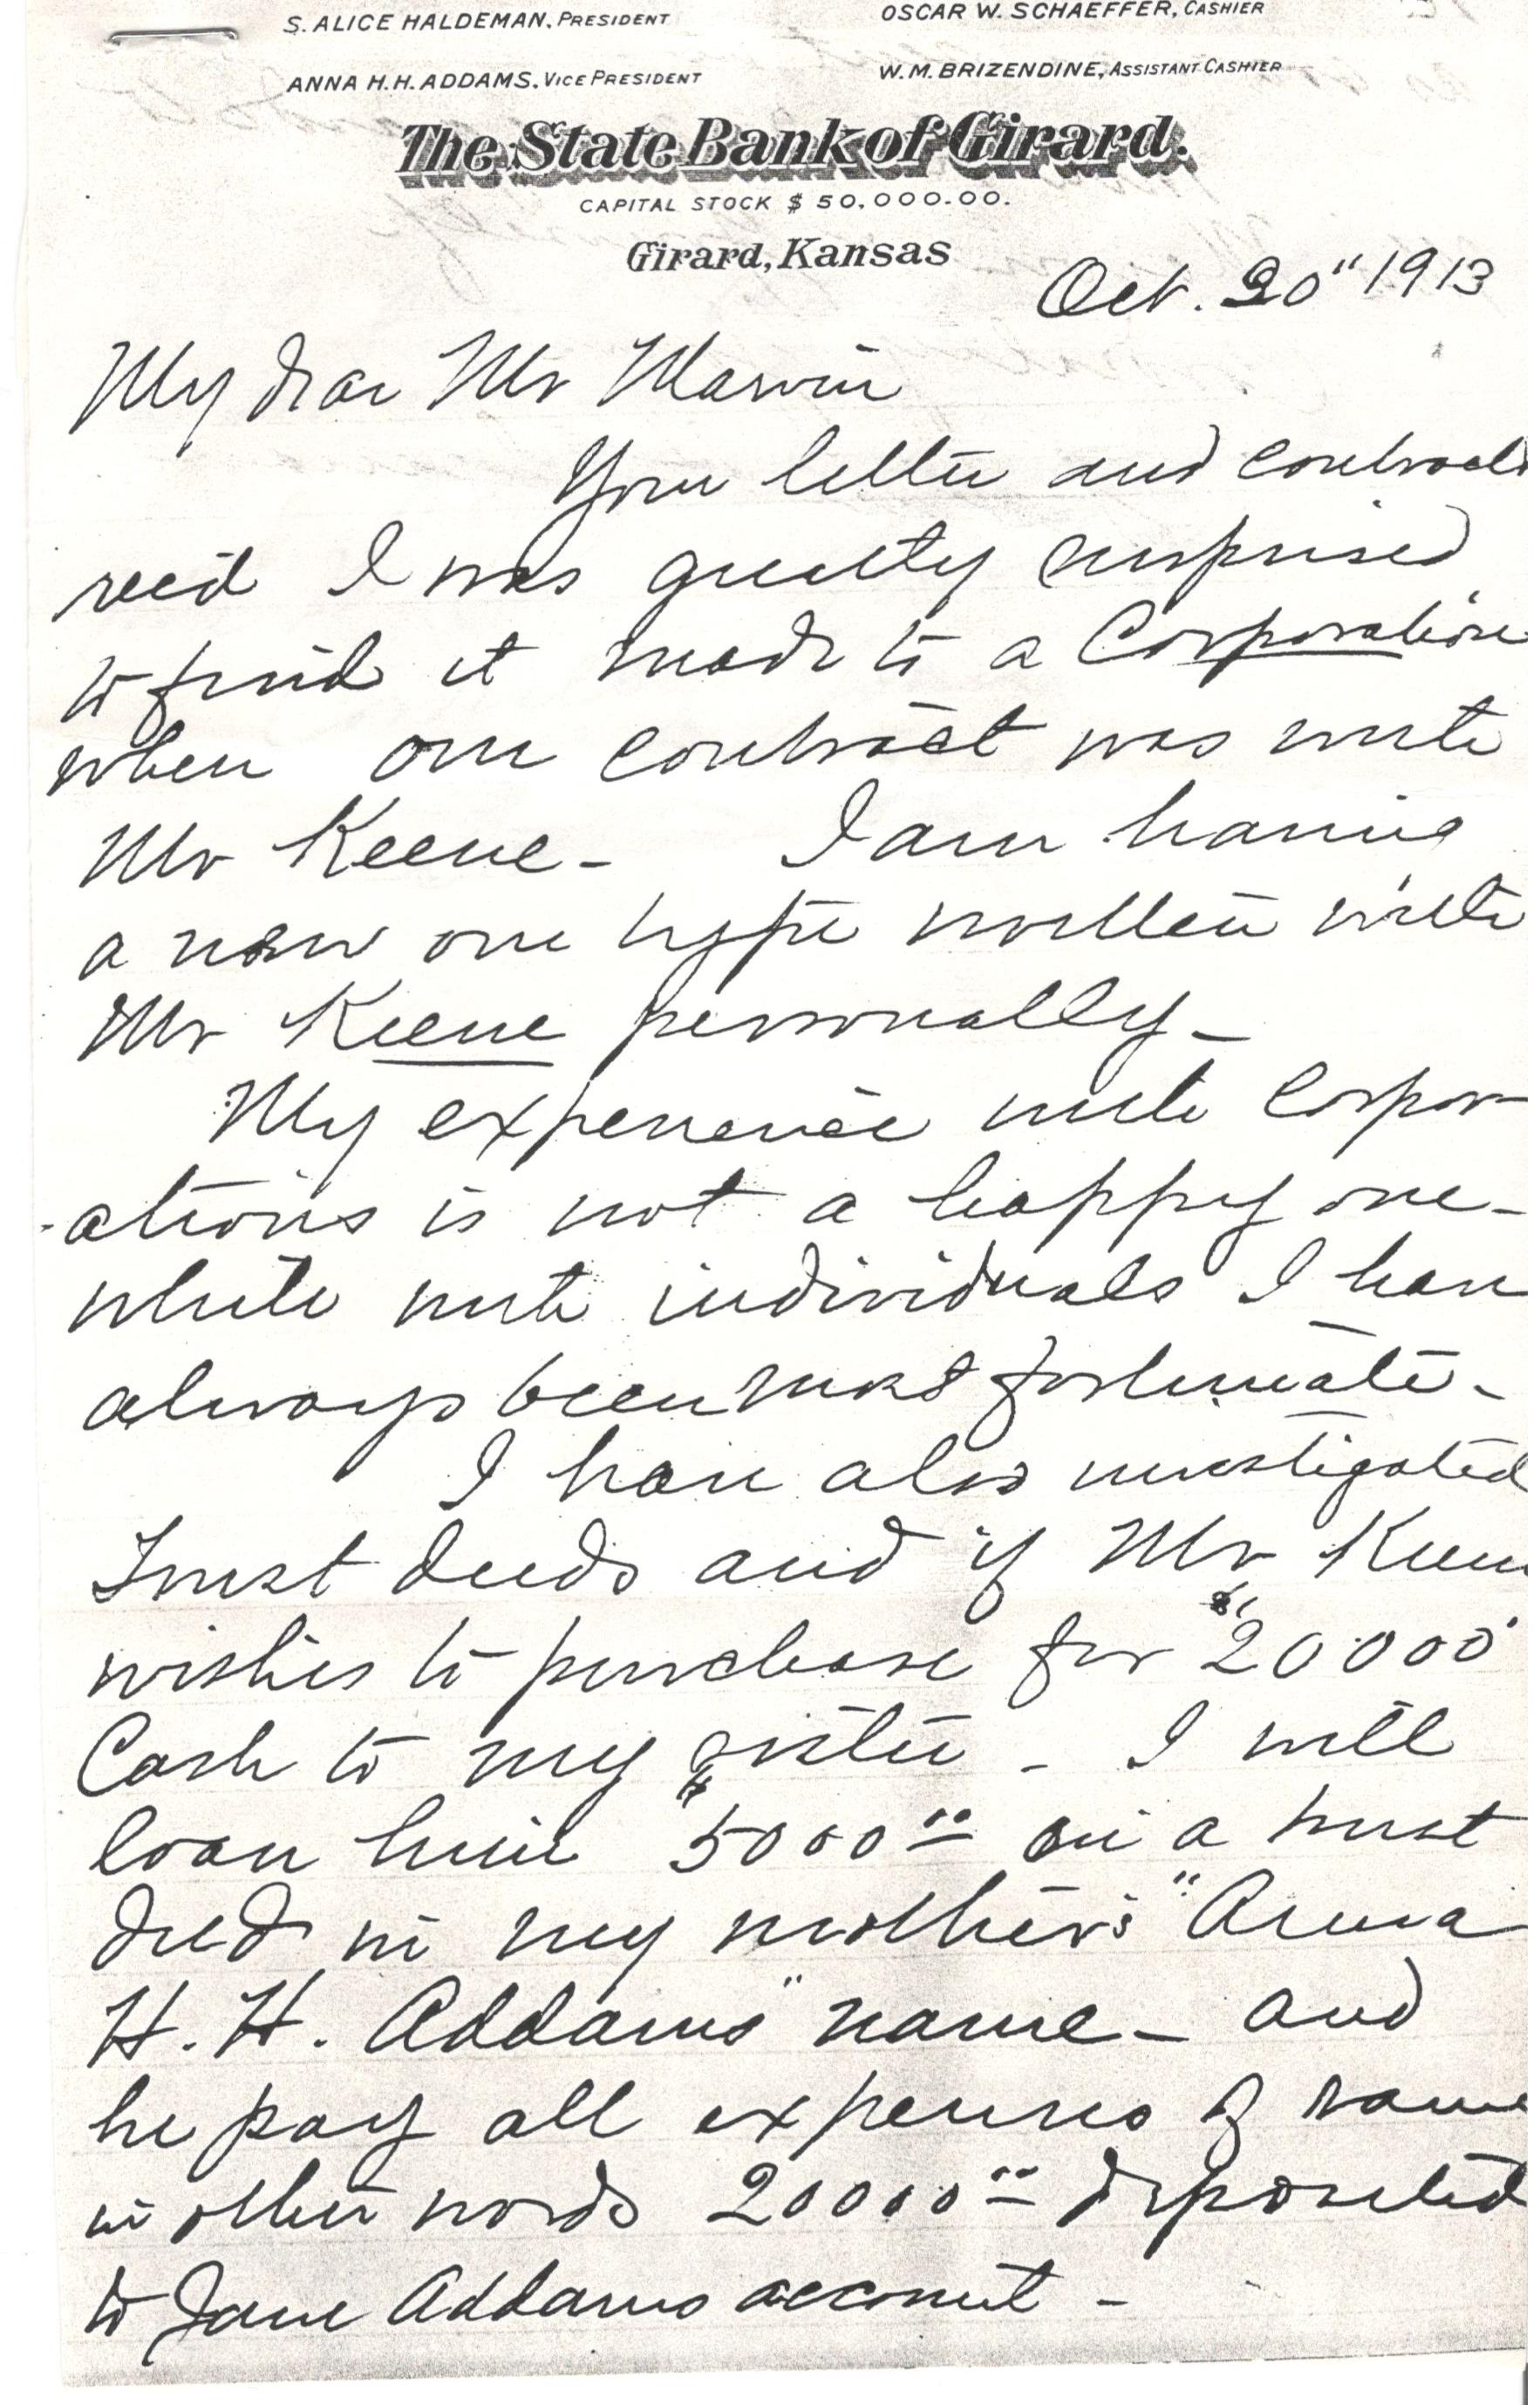 S. ALICE HALDEMAN, PRESIDENT
OSCAR W. SCHAEFFER, CASHIER
ANNA H. H. ADDAMS, VICE PRESIDENT
W. M. BRIZENDINE, ASSISTANT CASHIER
The State Bank of Girard.
CAPITAL STOCK $50,000.00.
Girard, Kansas
Oct. 20" 1913
My dear Mr Marvin
Your letter and contracts
rec'd I was greatly surprised
to find it made to a Corporation
when our contract was with
Mr Keene - I am having
a new one type written with
Mr Keene personally -
My experience with corpor-
-ations is not a happy one -
while with individuals I have
always been most fortunate -
I have also investigated
Trust deeds and if Mr Keene
wishes to purchase for $20000
Cash to my sister - I will
loan him $5000.00 on a trust
deed in my mother's "Anna
H. H. Addams" name - and
he pay all expenses of same
in other words 20000.00 deposited
to Jane Addams account -